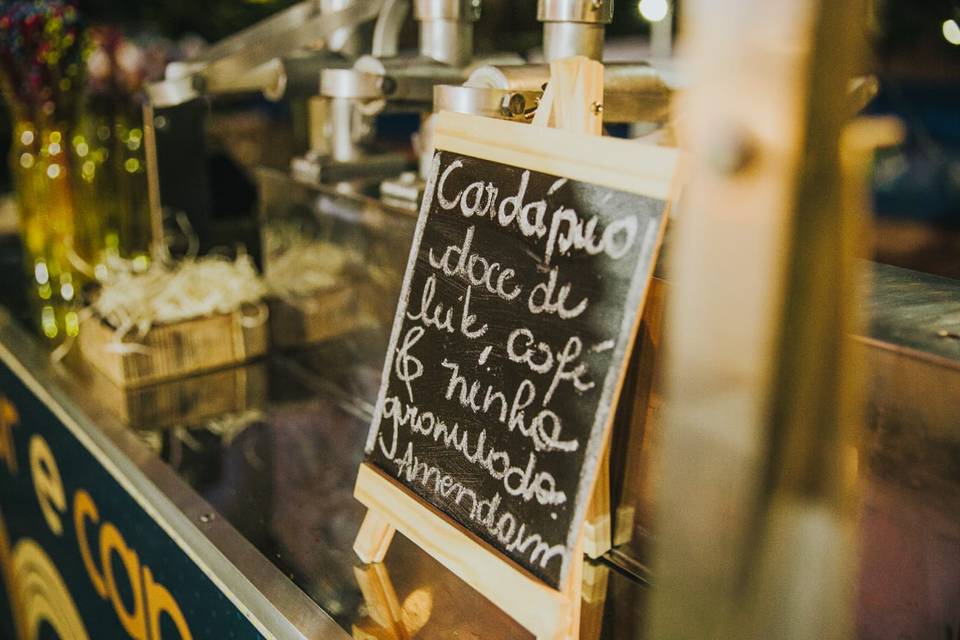 Cardápio
doce de
leite, café
& ninho
granulado:
Amendoim
e
can